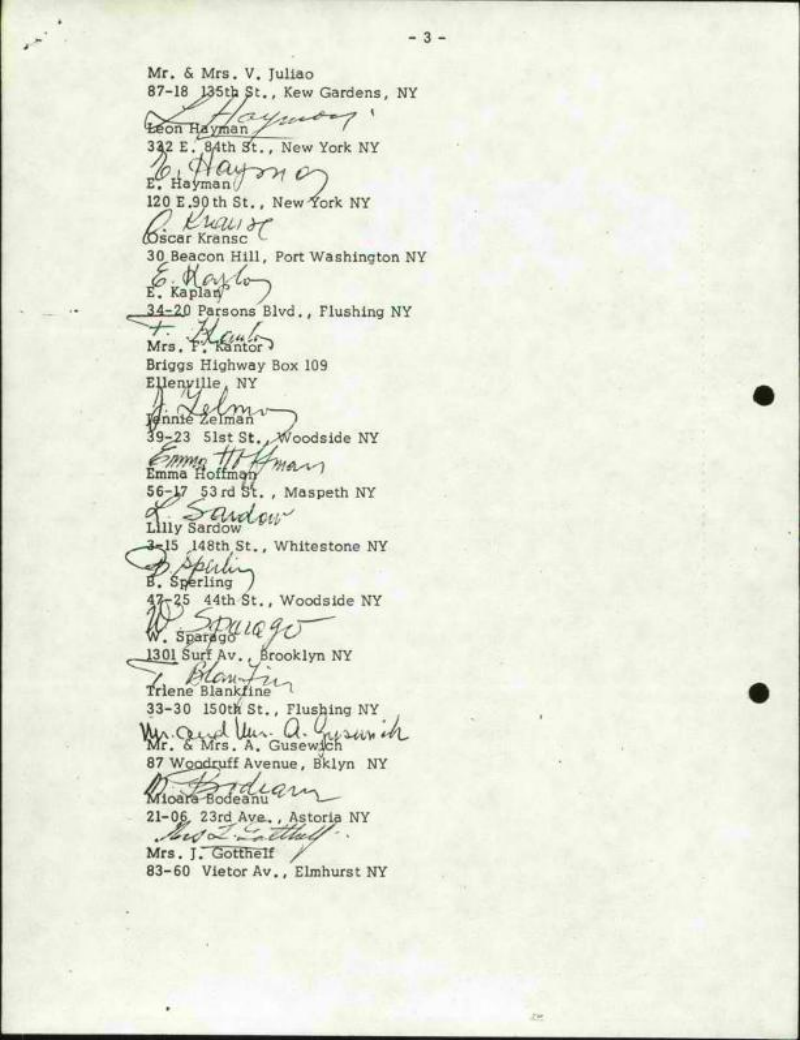 - 3 -
Mr. & Mrs. V. Juliao
87-18 135th St., Kew Gardens, NY
L. Hayman
Leon Hayman
332 E. 84th St., New York NY
E. Hayman
E. Hayman
120 E.90th St., New York NY
O. Kranse
Oscar Kransc
30 Beacon Hill, Port Washington NY
E. Kaplan
E. Kaplan
34-20 Parsons Blvd., Flushing NY
F. Kantor
Mrs. F. Kantor
Briggs Highway Box 109
Ellenville, NY
J. Zelman
Jennie Zelman
39-23 51st St., Woodside NY
Emma Hoffman
Emma Hoffman
56-17 53rd St., Maspeth NY
L. Sardow
Lilly Sardow
3-15 148th St., Whitestone NY
B. Sperling
B. Sperling
47-25 44th St., Woodside NY
W. Sparago
W. Sparago
1301 Surf Av., Brooklyn NY
T. Blankfine
Triene Blankfine
33-30 150th St., Flushing NY
Mr. and Mrs. A. Gusewich
Mr. & Mrs. A. Gusewich
87 Woodruff Avenue, Bklyn NY
Bodeanu
Mioara Bodeanu
21-06 23rd Ave., Astoria NY
Mrs Gotthelf
Mrs. J. Gotthelf
83-60 Vietor Av., Elmhurst NY